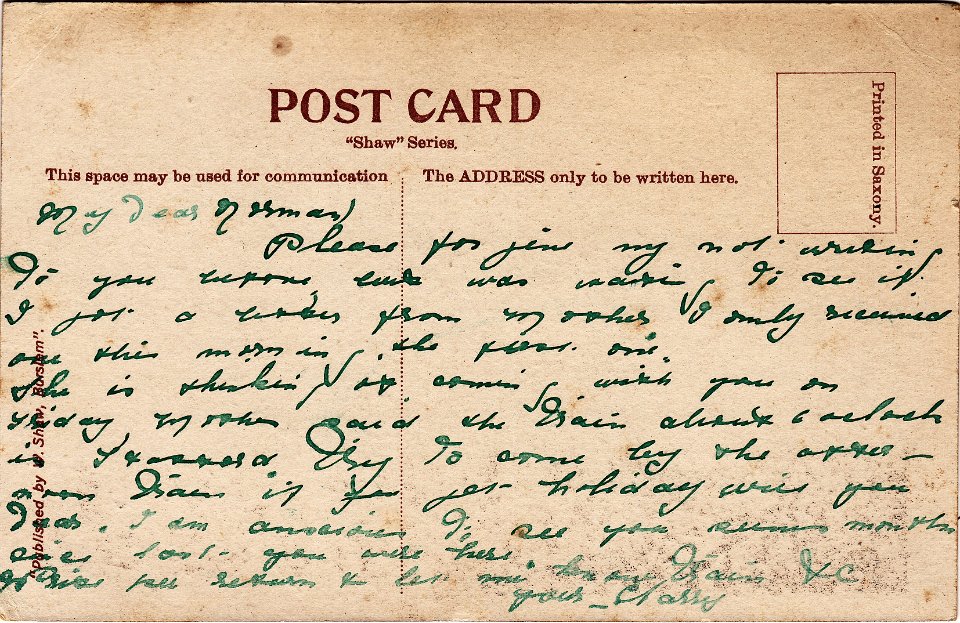 POST CARD
"Shaw" Series.
This space may be used for communication
The ADDRESS only to be written here.
Printed in Saxony.
"Published by W. Shaw, Burslem".
My Dear Norman
Please forgive my not writing
To you before but was waiting To see if
I got a letter from Mother I only received
one this morning, the first one.
She is thinking of coming with you on
Friday Mother said the Train about 6 oclock
is Try To come by the after-
noon Train if you get holiday will you
Dear. I am anxious To see you seems months
since last you were here
Write per return & let me know Train &C
yours - Clarry